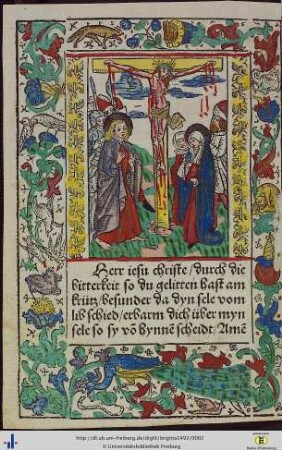 Herr iesu christe/durch die
bitterkeit so du gelitten hast am
krütz/besunder da dyn sele vom
lib schied/erbarm dich über myn
sele so sy vō hynnē scheidt/Amē
http://dl.ub.uni-freiburg.de/diglit/brigitta1492/0002
© Universitätsbibliothek Freiburg